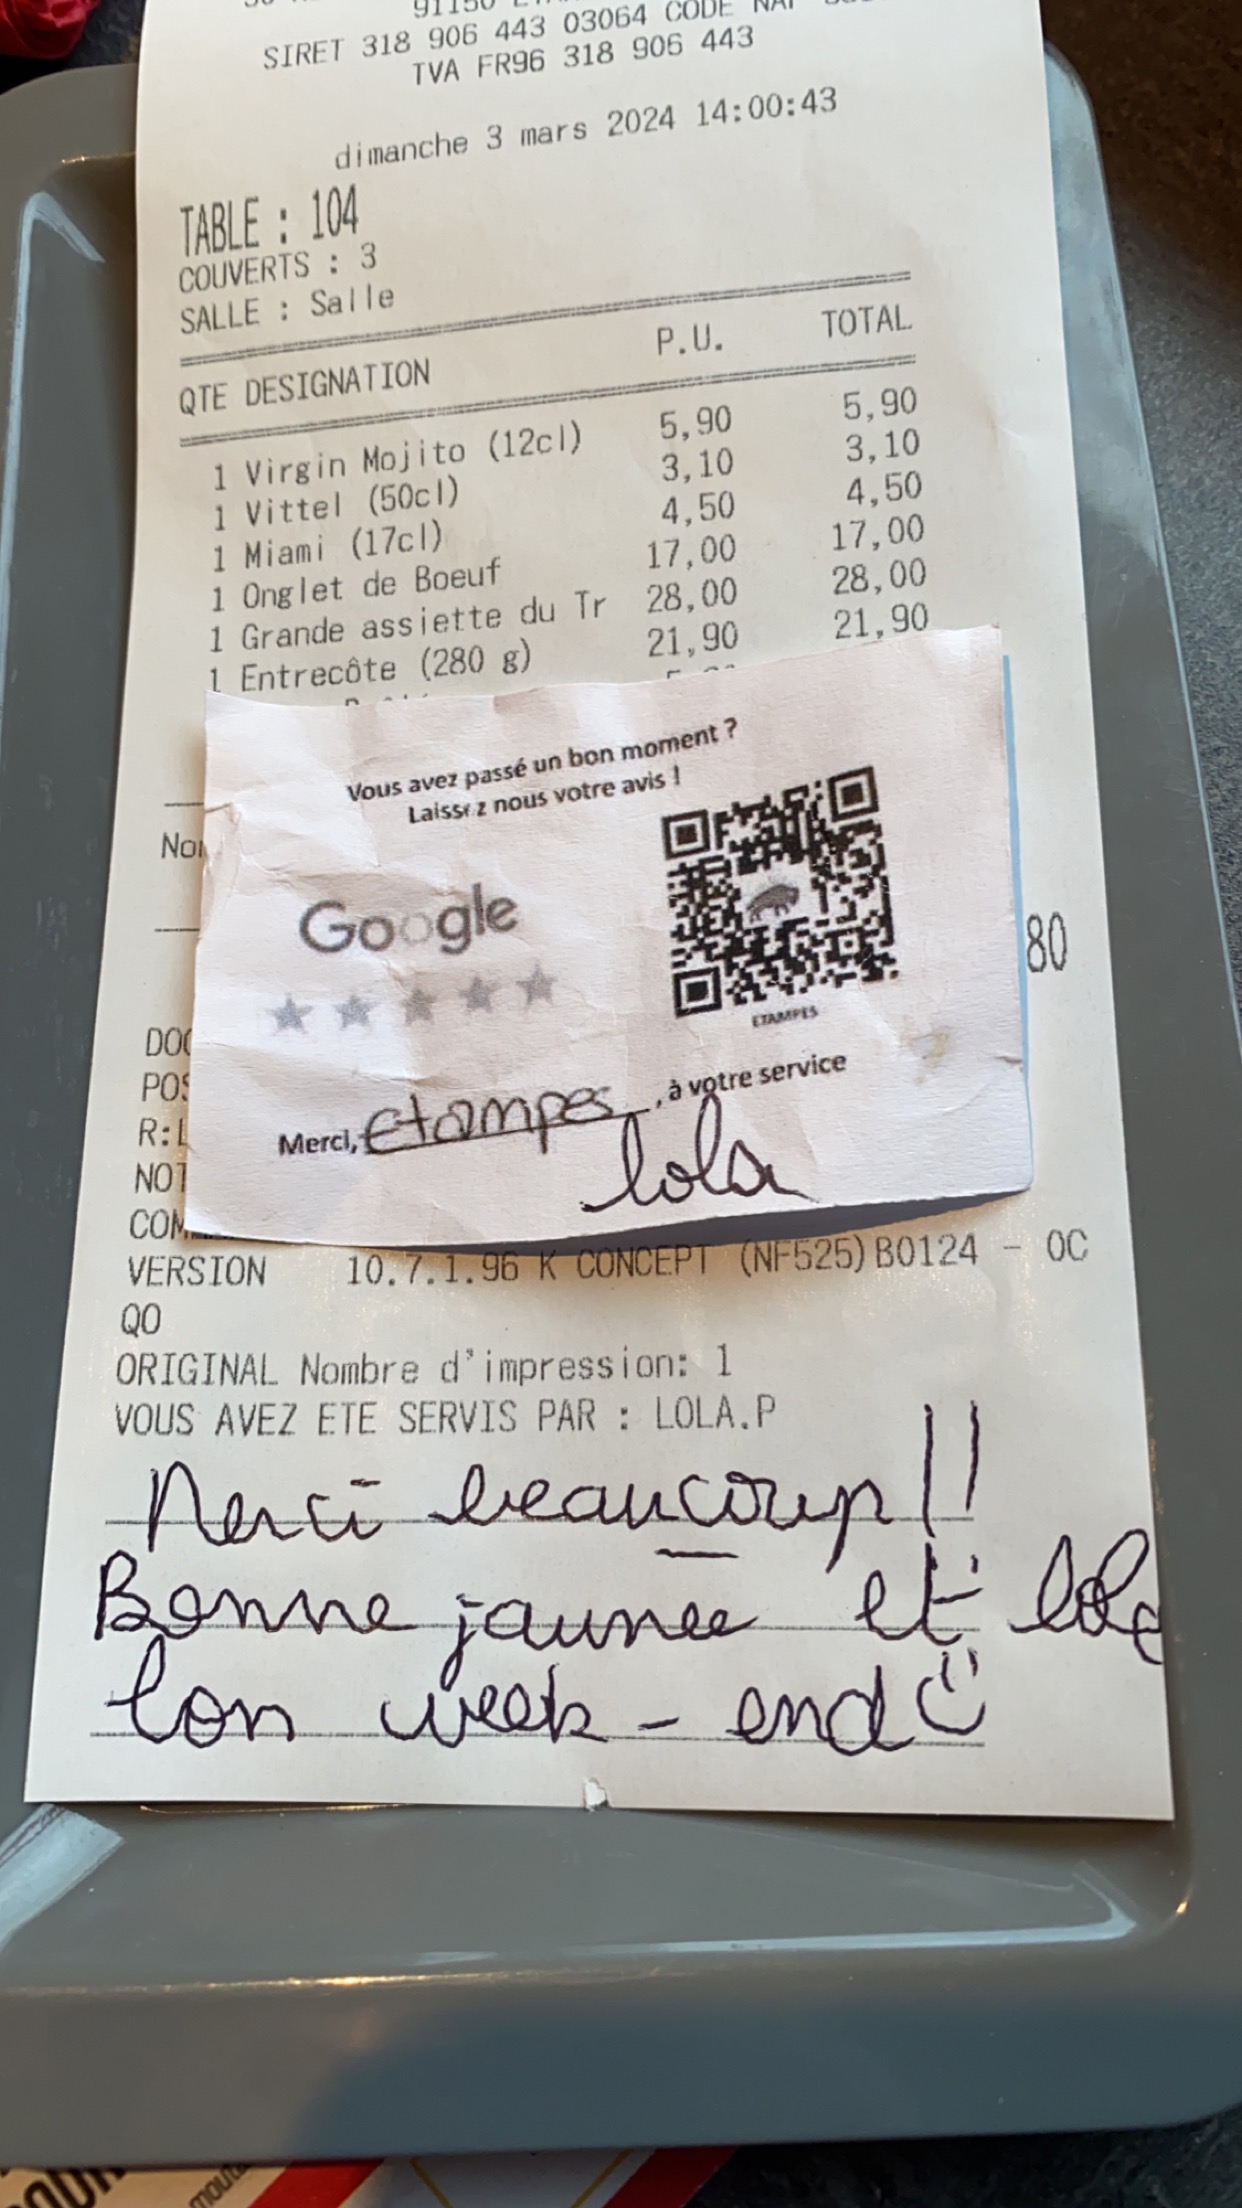 91150
SIRET 318 906 443 03064 CODE
TVA FR96 318 906 443
dimanche 3 mars 2024 14:00:43
TABLE : 104
COUVERTS : 3
SALLE : Salle
QTE DESIGNATION P.U. TOTAL
1 Virgin Mojito (12cl) 5,90 5,90
1 Vittel (50cl) 3,10 3,10
1 Miami (17cl) 4,50 4,50
1 Onglet de Boeuf 17,00 17,00
1 Grande assiette du Tr 28,00 28,00
1 Entrecôte (280 g) 21,90 21,90
Vous avez passé un bon moment ?
Laissez nous votre avis !
Google
ETAMPES
Merci, Etampes, à votre service
lola
80
VERSION 10.7.1.96 K CONCEPT (NF525) B0124 - OC
QO
ORIGINAL Nombre d'impression: 1
VOUS AVEZ ETE SERVIS PAR : LOLA.P
Merci beaucoup !!
Bonne jaunee et lola
bon week-end